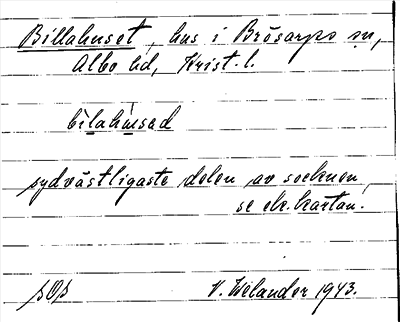 Billahuset, hus i Brösarps sn,
Albo hd, Krist. l.
bìlahùsəd
sydvästligaste delen av socknen,
se ek. kartan.
sOs V. Welander 1943.